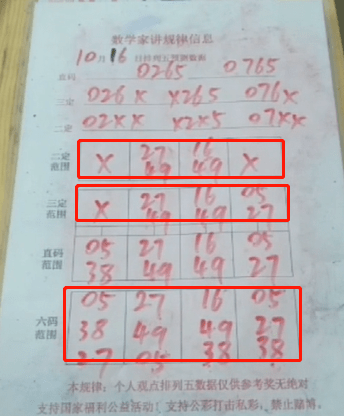 数学家讲规律信息
10月16日排列五预测数据
直码 0265 0765
三定 026X X265 076X
二定 02XX X2X5 07XX
二定范围 X 27 16 X
49 49
三定范围 X 27 16 05
49 49 27
直码范围 05 27 16 05
38 49 49 27
六码范围 05 27 16 05
38 49 49 27
27 05 38 38
本规律：个人观点排列五数据仅供参考奖无绝对
支持国家福利公益活动 支持公彩打击私彩、禁止赌博。